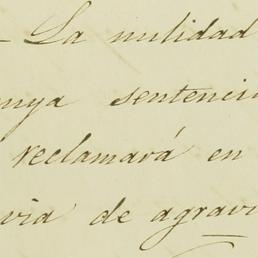 - La nulidad
unya sentencia
reclamará en
via de agravi